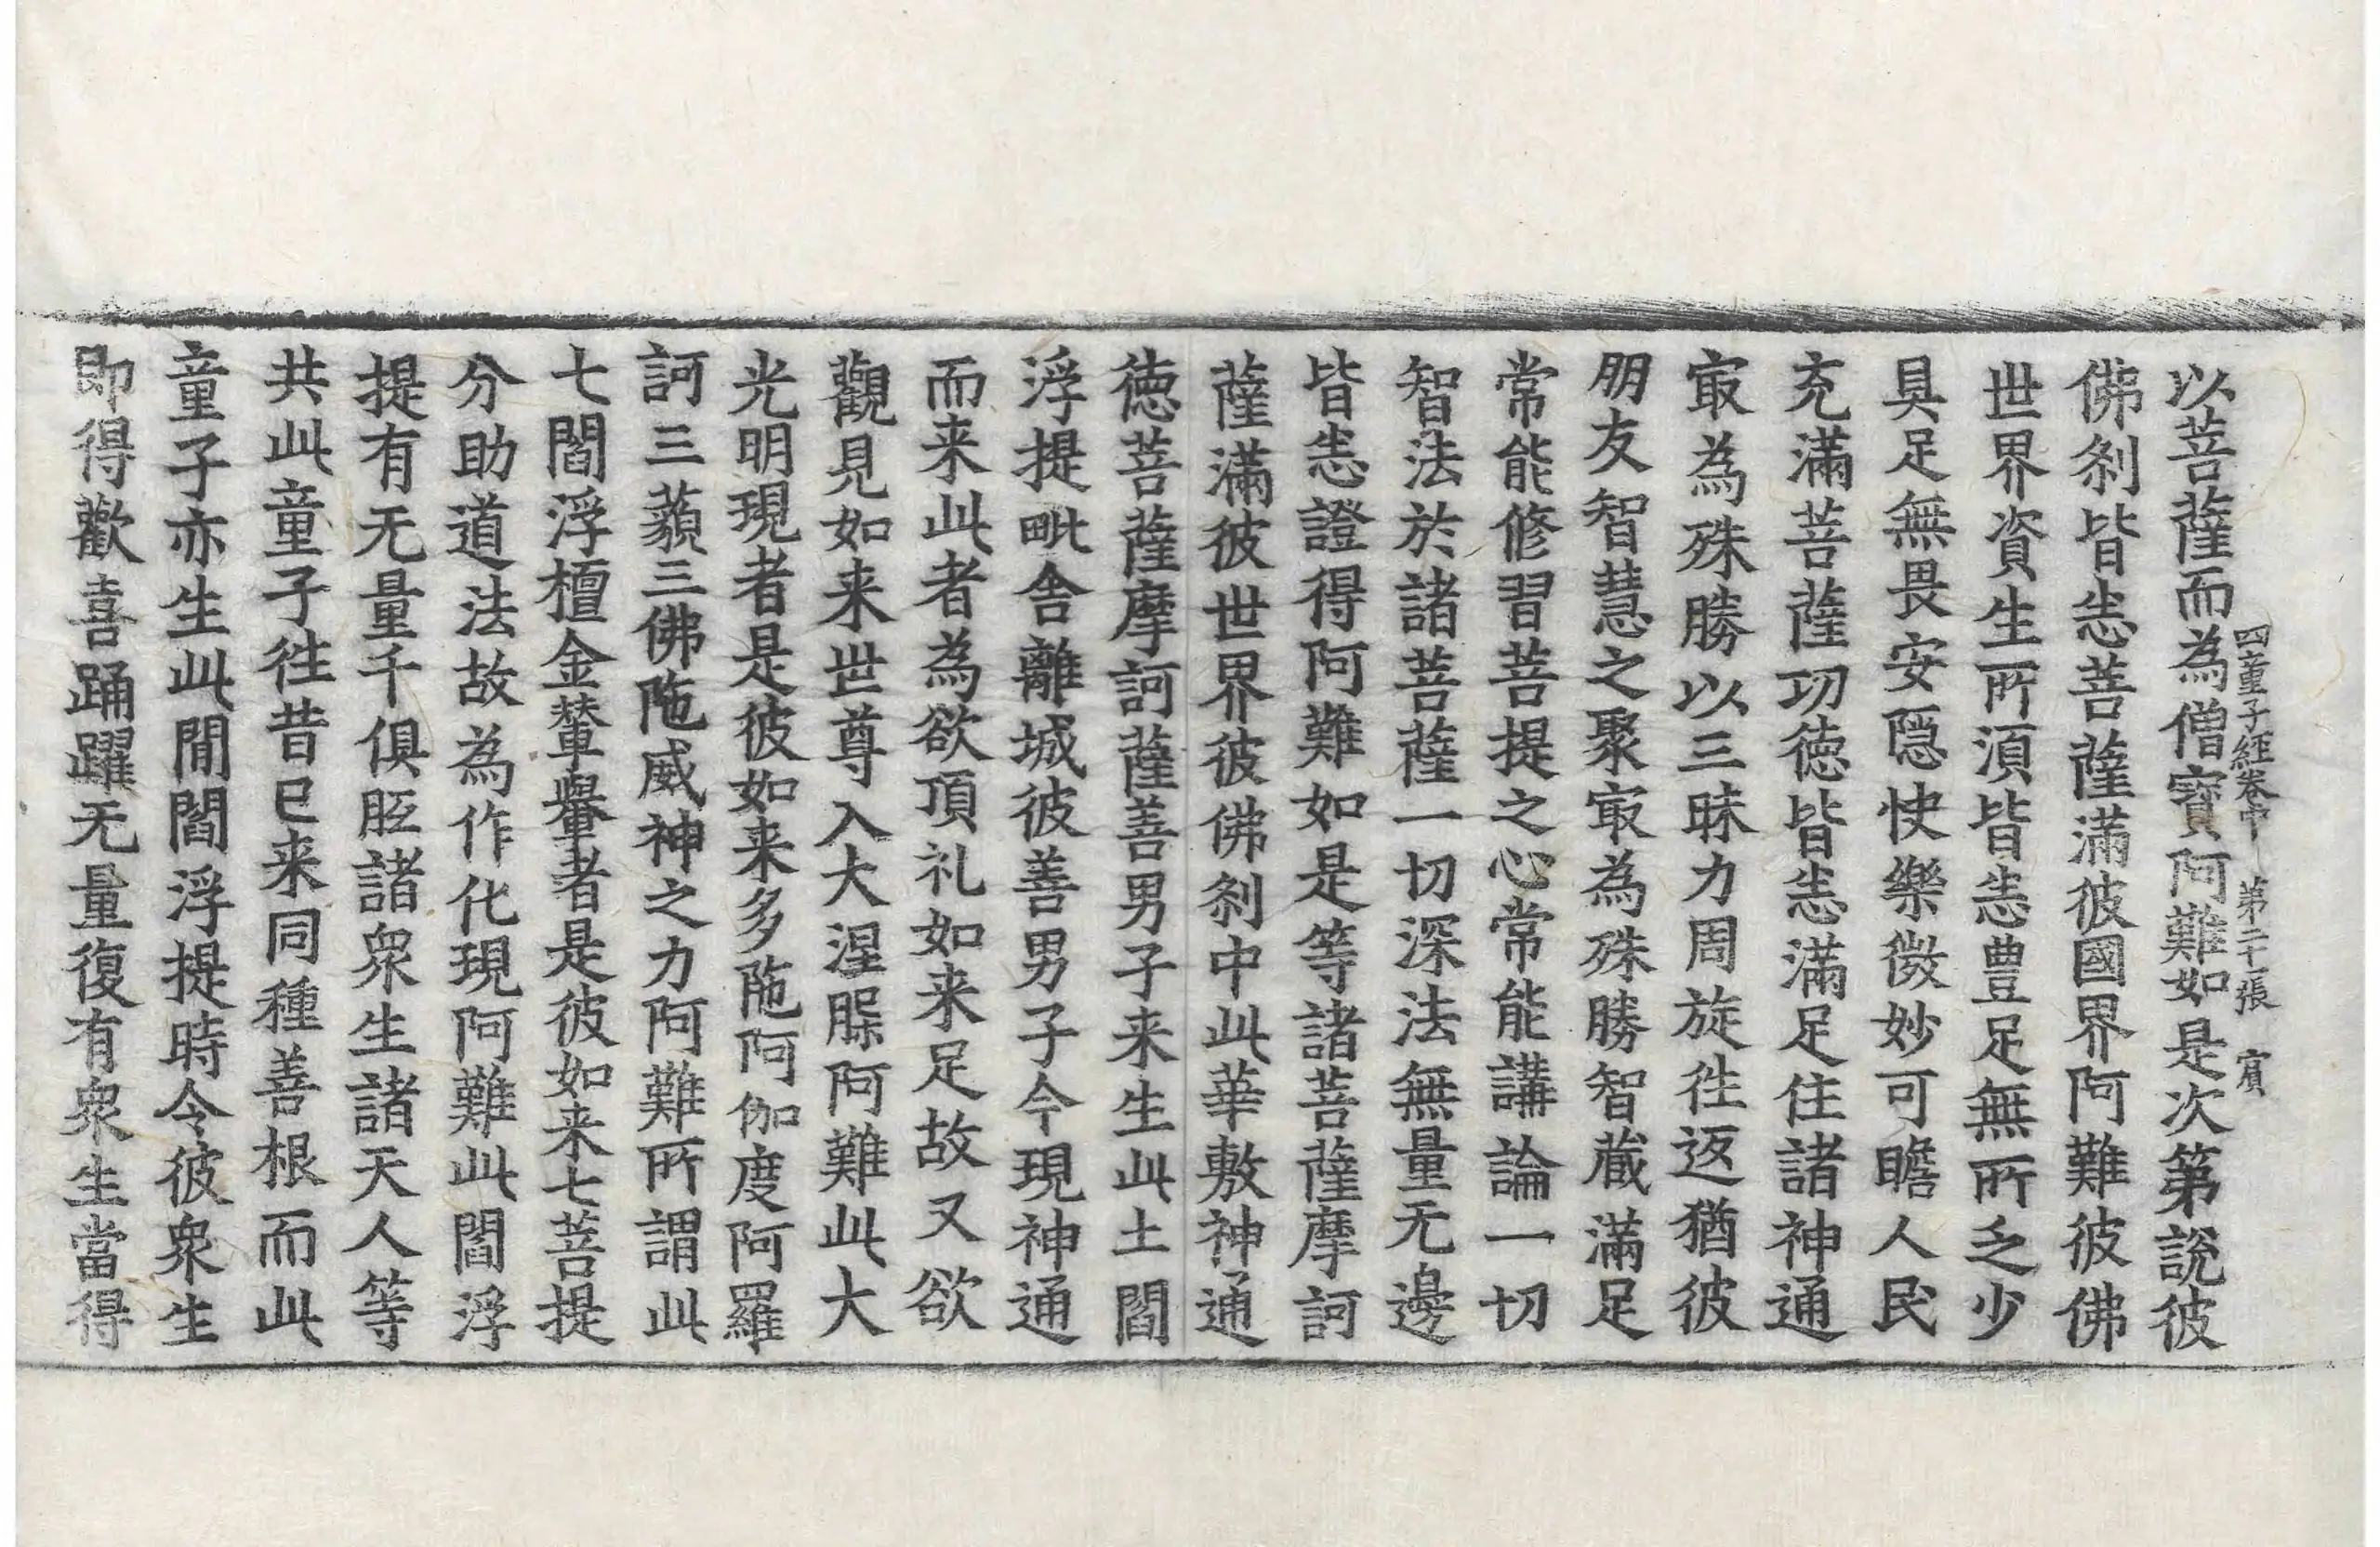 四童子經卷中　第二十張　賔
以菩薩而為僧寶阿難如是次第說彼
佛刹皆悉菩薩滿彼國界阿難彼佛
世界資生所湏皆悉豊足無所乏少
具足無畏安隠快樂微妙可瞻人民
充滿菩薩功徳皆悉滿足住諸神通
㝡為殊勝以三昧力周旋徃返猶彼
朋友智慧之聚㝡為殊勝智藏滿足
常能修習菩提之心常能講論一切
智法於諸菩薩一切深法無量无邊
皆悉證得阿難如是等諸菩薩摩訶
薩滿彼世界彼佛刹中此華敷神通
徳菩薩摩訶薩善男子来生此土閻
浮提毗舍離城彼善男子今現神通
而来此者為欲頂礼如来足故又欲
觀見如来世尊入大涅脲阿難此大
光明現者是彼如来多陁阿伽度阿羅
訶三藐三佛陁威神之力阿難所謂此
七閻浮檀金輦轝者是彼如来七菩提
分助道法故為作化現阿難此閻浮
提有无量千俱胝諸衆生諸天人等
共此童子徃昔已来同種善根而此
童子亦生此閒閻浮提時令彼衆生
即得歡喜踊躍无量復有衆生當得